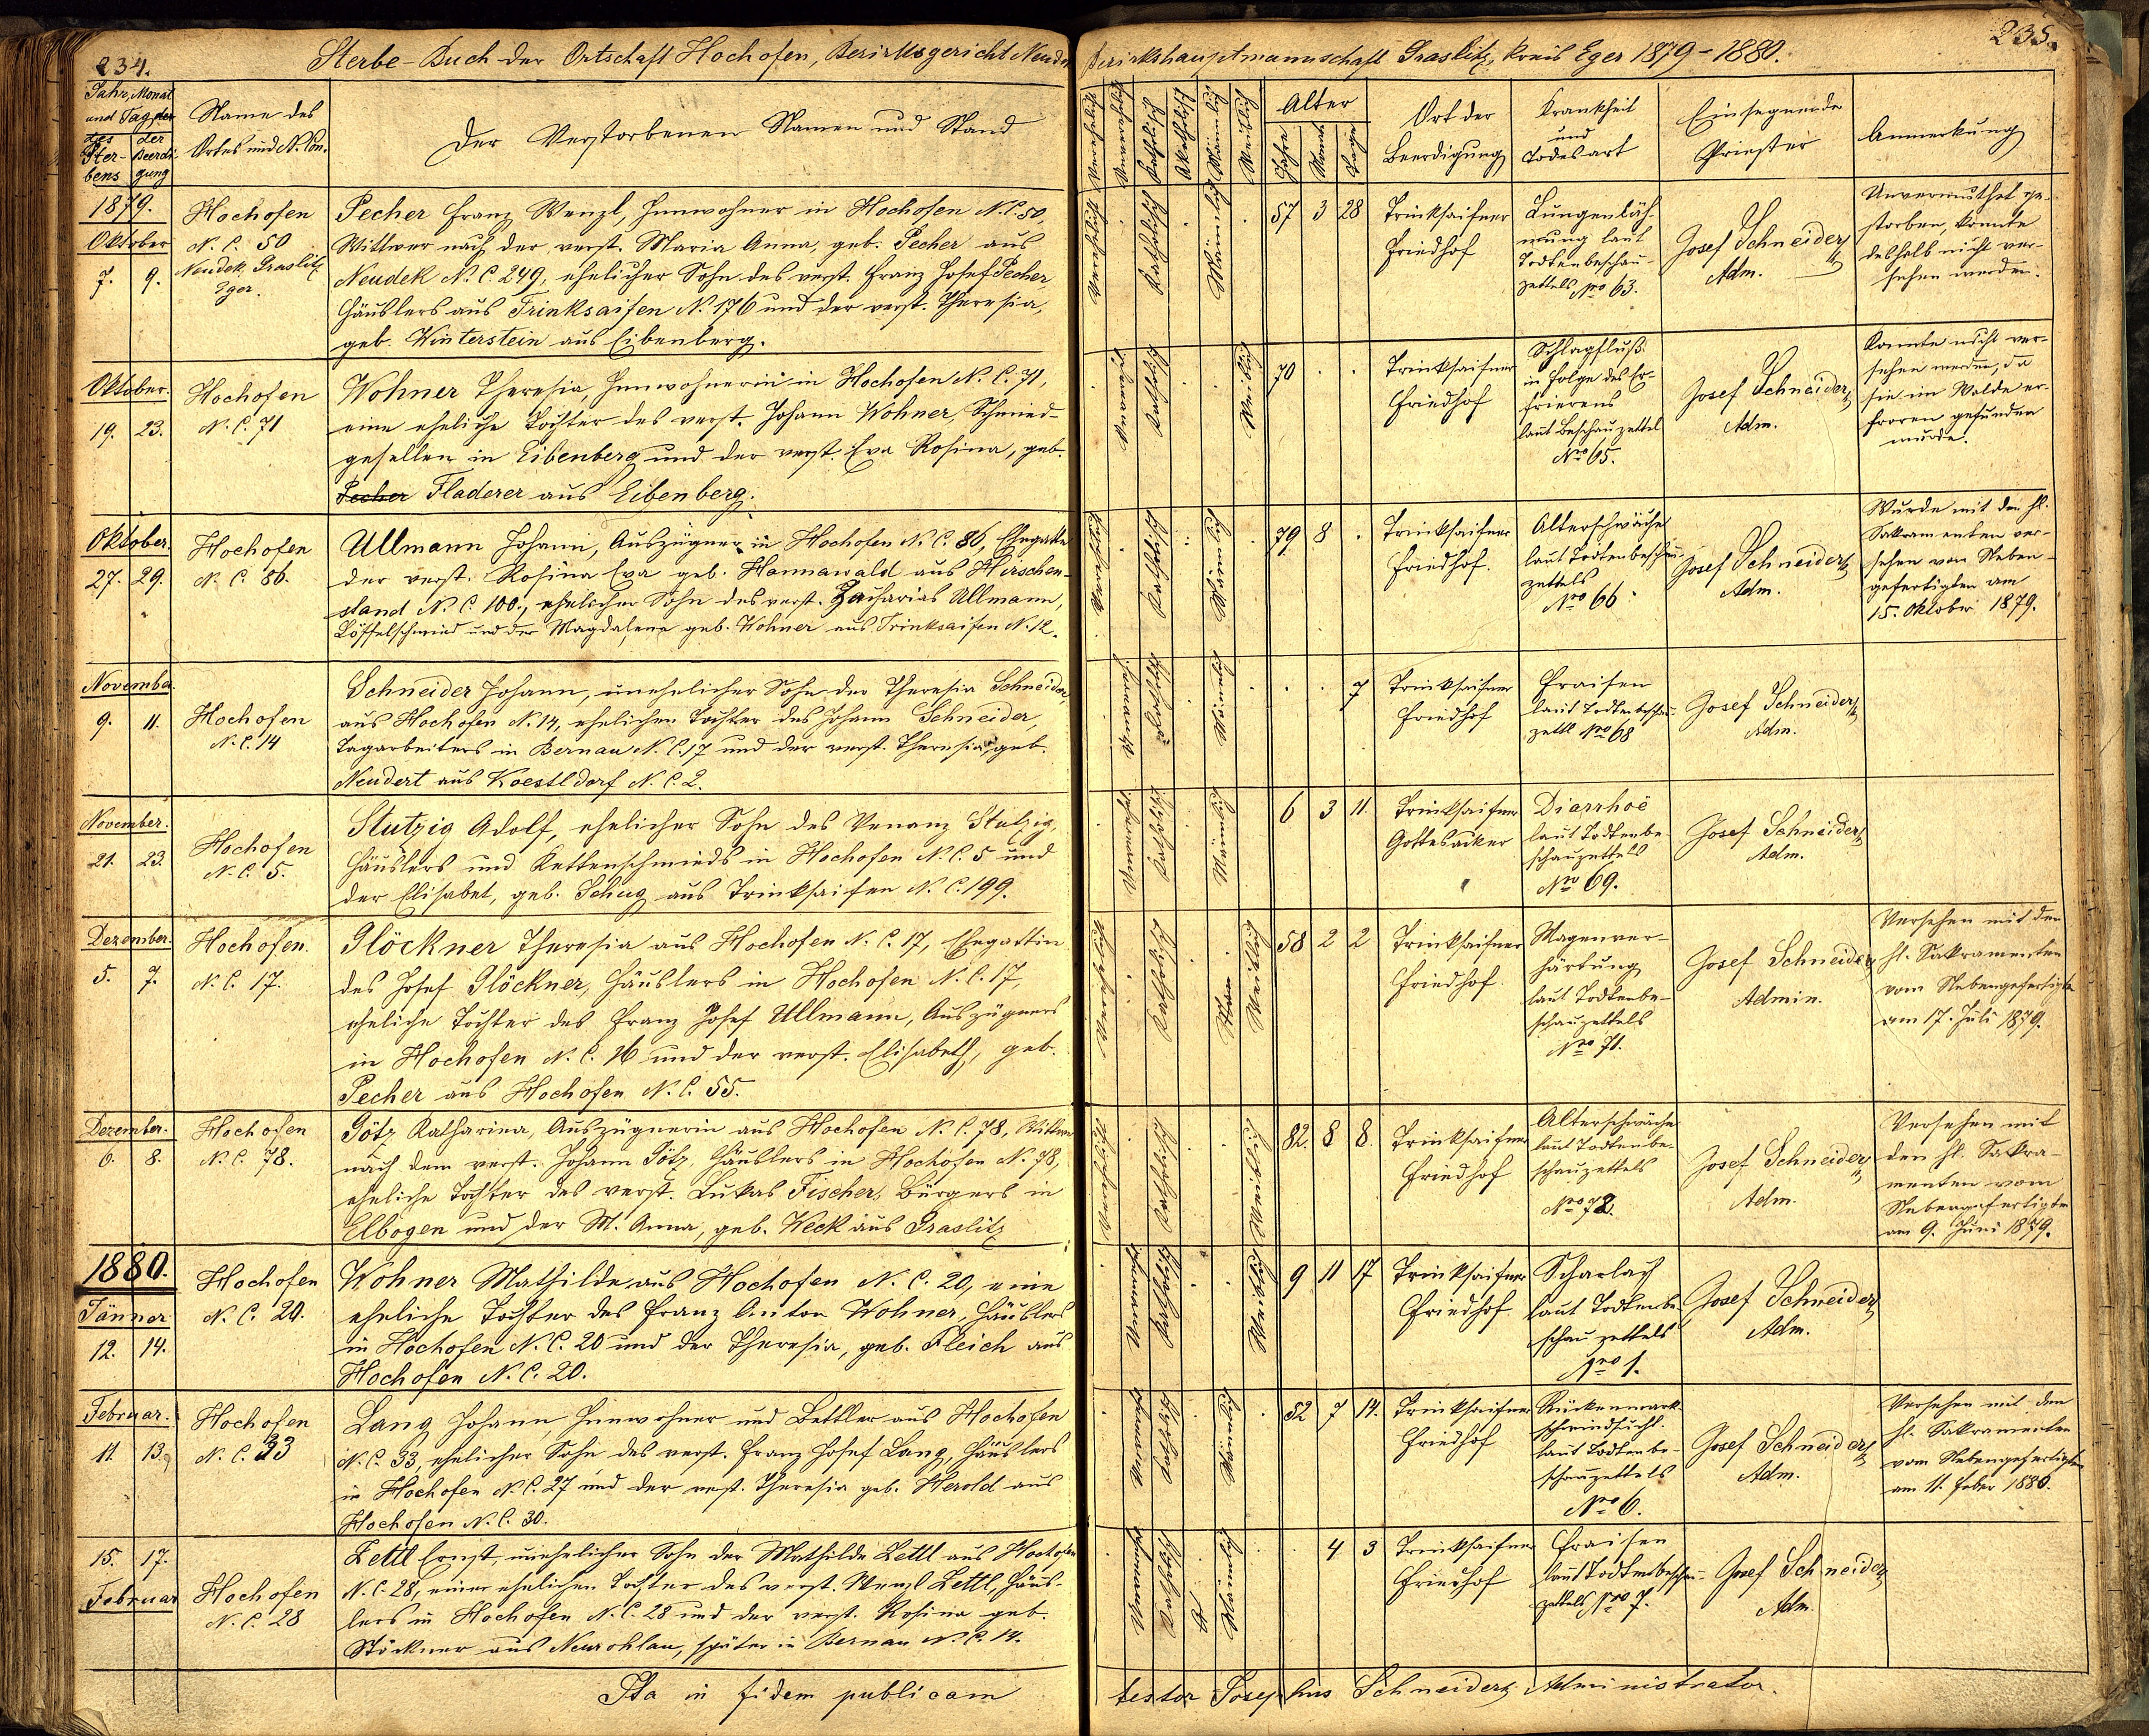 234.
Sterbe-Buch der Ortschaft Hochofen, Bezirksgericht Neudek
Jahr, Monat
und Tag der
des
Ster-
bens
der
Beerdi-
gung
Name des
Ortes und N. Con.
Der Verstorbenen Namen und Stand
1879.
Oktober
7. 9.
Hochofen
N. C. 50
Neudek, Graslitz
Eger.
Pecher Franz Wenzl, Innwohner in Hochofen N.C. 50,
Wittwer nach der verst. Maria Anna, geb. Pecher aus
Neudek N. C. 249, ehelicher Sohn des verst. Franz Josef Pecher
Häuslers aus Trinksaifen N. 176 und der verst. Theresia,
geb. Winterstein aus Eibenberg.
Oktober.
19. 23.
Hochofen
N. C. 71
Wohner Theresia, Innwohnerin in Hochofen N. C. 71,
eine eheliche Tochter des verst. Johann Wohner, Schmied-
gesellen in Eibenberg und der verst. Eva Rosina, geb.
Pecher Fladerer aus Eibenberg.
Oktober.
27. 29.
Hochofen
N. C. 86.
Ullmann Johann, Auszügner in Hochofen N. C. 86, Ehegatte
der verst. Rosina Eva geb. Hannawald aus Hirschen-
stand N. C. 100., ehelicher Sohn des verst. Zacharias Ullmann,
Löffelschmied und der Magdalena geb. Wohner aus Trinksaifen N. 12.
November.
9. 11.
Hochofen
N. C. 14
Schneider Johann, unehelicher Sohn der Theresia Schneider,
aus Hochofen N. 14, ehelichen Tochter des Johann Schneider,
Tagarbeiters in Bernau N. C. 17 und der verst. Theresia, geb.
Neudert aus Koestldorf N. C. 2.
November.
21. 23.
Hochofen
N. C. 5.
Stutzig Adolf, ehelicher Sohn des Venanz Stutzig,
Häuslers und Kettenschmieds in Hochofen N. C. 5 und
der Elisabet, geb. Schug aus Trinksaifen N. C. 199.
Dezember.
5. 7.
Hochofen.
N. C. 17.
Glöckner Theresia aus Hochofen N. C. 17, Ehegattin
des Josef Glöckner, Häuslers in Hochofen N. C. 17,
eheliche Tochter des Franz Josef Ullmann, Auszügners
in Hochofen N. C. 16 und der verst. Elisabeth, geb.
Pecher aus Hochofen N. C. 55.
Dezember.
6. 8.
Hochofen
N. C. 78.
Götz Katharina, Auszügnerin aus Hochofen N. C. 78, Wittwe
nach dem verst. Johann Götz, Häuslers in Hochofen N. 78,
eheliche Tochter des verst. Lukas Fischer, Bürgers in
Elbogen und der M. Anna, geb. Keck aus Graslitz
1880.
Jänner
12. 14.
Hochofen
N. C. 20.
Wohner Mathilde aus Hochofen N. C. 20, eine
eheliche Tochter des Franz Anton Wohner, Häuslers
in Hochofen N. C. 20 und der Theresia, geb. Fleich aus
Hochofen N. C. 20.
Februar.
11. 13.
Hochofen
N. C. 33
Lang Johann, Innwohner und Bettler aus Hochofen
N. C. 33, ehelicher Sohn des verst. Franz Josef Lang, Häuslers
in Hochofen N. C. 27 und der verst. Theresia geb. Herold aus
Hochofen N. C. 30.
15. 17.
Februar
Hochofen
N. C. 28
Zettl Ernst, unehelicher Sohn der Mathilde Zettl aus Hochofen
N. C. 28, einer ehelichen Tochter des verst. Wenzl Zettl, Häus-
lers in Hochofen N. C. 28 und der verst. Rosina geb.
Stöckner aus Neurohlau, später in Bernau N. C. 14.
Ita in fidem publicam
235.
Bezirkshauptmannschaft Graslitz, Kreis Eger 1879 - 1880.
Verehelicht
Katholisch
Akatholisch
Männlich
Weiblich
Alter
Jahre
Monate
Tage
Ort der
Beerdigung
Krankheit
und
Todesart
Einsegnende
Priester
Anmerkung
Katholisch
Männlich
57 3 28
Trinksaifner
Friedhof
Lungenläh-
mung laut
Todtenbeschau-
zettels Nro 63.
Josef Schneider
Adm.
Unvermuthet ge-
storben, konnte
deshalb nicht ver-
sehen werden.
Katholisch
Weiblich
70 . .
Trinksaifner
Friedhof
Schlagfluß
in Folge des Er-
frierens
laut Beschauzettel
Nro 65.
Josef Schneider
Adm.
Konnte nicht ver-
sehen werden, da
sie im Walde er-
froren gefunden
wurde.
Katholisch
Männlich
79 8 .
Trinksaifner
Friedhof.
Altersschwäche
laut Todtenbeschau-
zettels
Nro 66.
Josef Schneider
Adm.
Wurde mit den hl.
Sakramenten ver-
sehen vom Neben-
gefertigten am
15. Oktober 1879.
Katholisch
Männlich
. . 7
Trinksaifner
Friedhof
Fraisen
laut Todtenbeschau-
zettl Nro 68
Josef Schneider
Adm.
Katholisch
Männlich
6 3 11.
Trinksaifner
Gottesacker
Diarrhoë
laut Todtenbe-
schauzettels
Nro 69.
Josef Schneider
Adm.
Katholisch
Weiblich
58 2 2
Trinksaifner
Friedhof.
Magenver-
härtung
laut Todtenbe-
schauzettels
Nro 71.
Josef Schneider
Admin.
Versehen mit den
hl. Sakramenten
vom Nebengefertigten
am 17. Juli 1879.
Katholisch
Weiblich
82. 8 8.
Trinksaifner
Friedhof
Altersschwäche
laut Todtenbe-
schauzettels
Nro 72.
Josef Schneider
Adm.
Versehen mit
den hl. Sakra-
menten vom
Nebengefertigten
am 9. Juni 1879.
Katholisch
Weiblich
9 11 17
Trinksaifner
Friedhof.
Scharlach
laut Todtenbe-
schauzettels
Nro 1.
Josef Schneider
Adm.
Katholisch
Männlich
52 7 14.
Trinksaifner
Friedhof
Rückenmark-
schwindsucht.
laut Todtenbe-
schauzettels
Nro 6.
Josef Schneider
Adm.
Versehen mit den
hl. Sakramenten
vom Nebengefertigten
am 11. Feber 1880.
Katholisch
Männlich
. 4 3
Trinksaifner
Friedhof
Fraisen
laut Todtenbeschau-
zettels Nro 7.
Josef Schneider
Adm.
testor Josephus Schneider, Administrator.